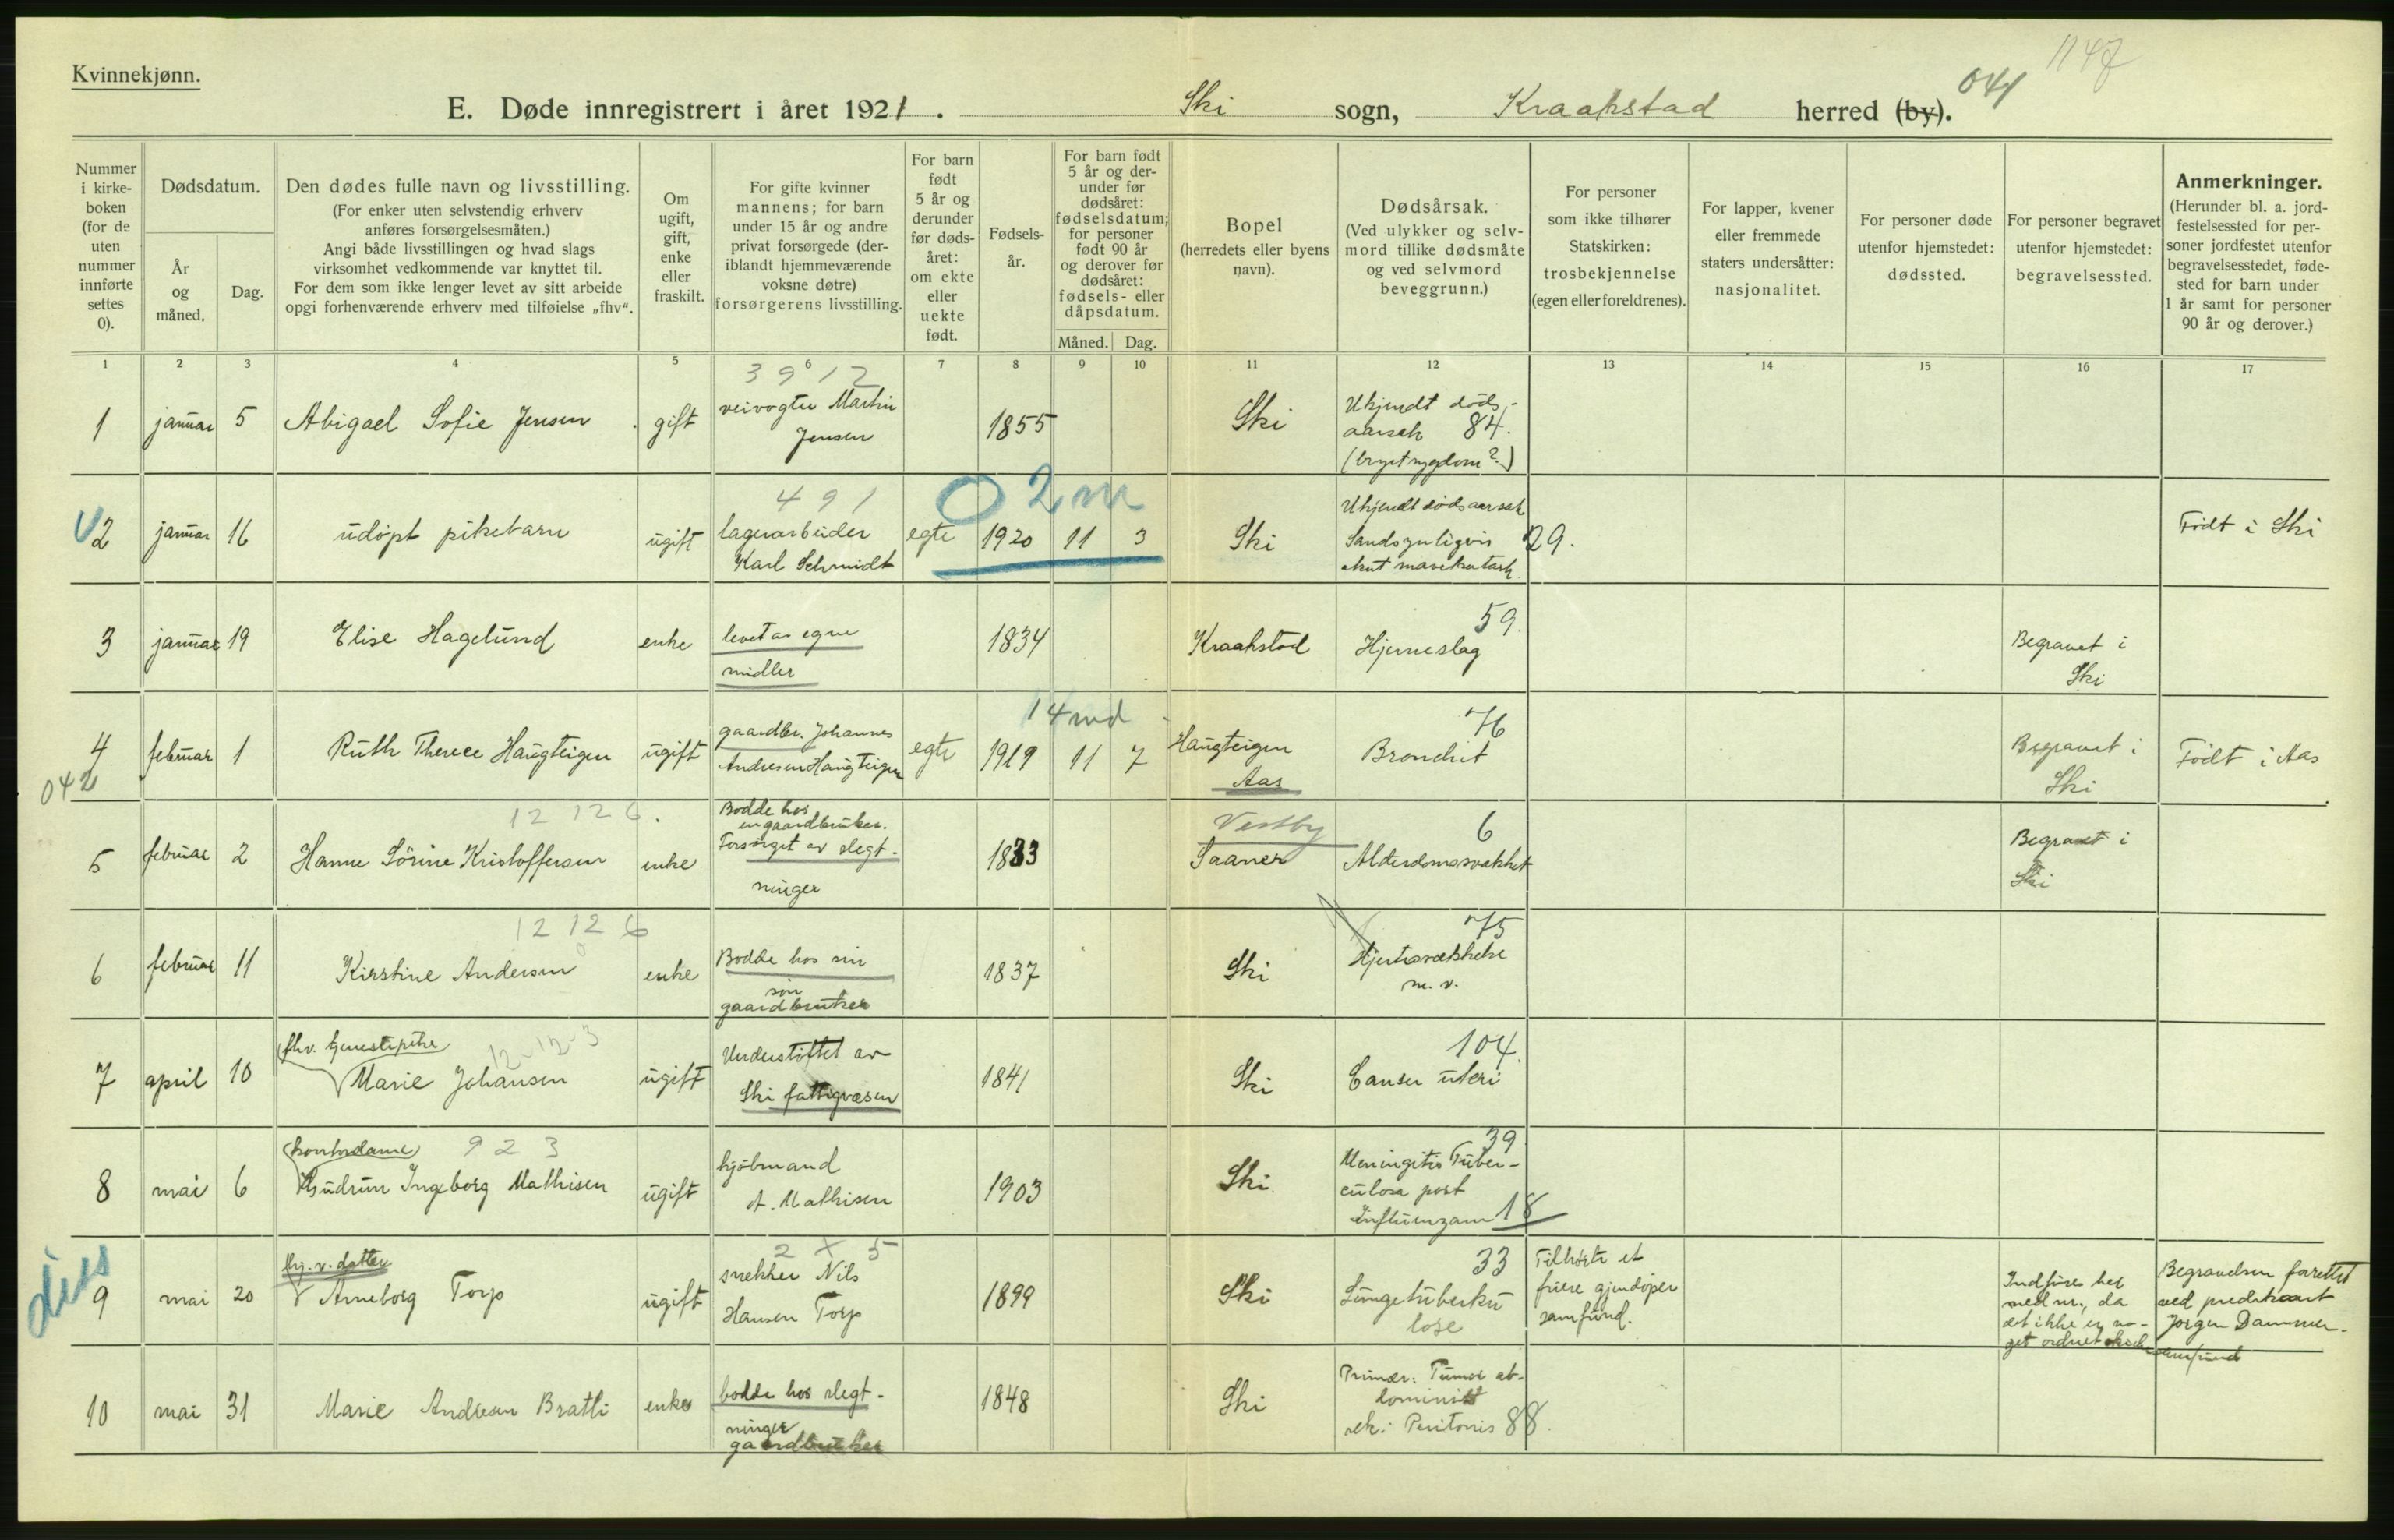 1147
Kvinnekjønn.
041
E. Døde innregistrert i året 1921. Ski sogn, Kraakstad herred (by).
Nummer i kirke-boken (for de uten nummer innførte settes 0).
Dødsdatum.
År og måned.
Dag.
Den dødes fulle navn og livsstilling.
(For enker uten selvstendig erhverv anføres forsørgelsesmåten.)
Angi både livsstillingen og hvad slags virksomhet vedkommende var knyttet til.
For dem som ikke lenger levet av sitt arbeide opgi forhenværende erhverv med tilføielse „fhv“.
Om ugift, gift, enke eller fraskilt.
For gifte kvinner mannens; for barn under 15 år og andre privat forsørgede (deriblandt hjemmeværende voksne døtre) forsørgerens livsstilling.
For barn født 5 år og derunder før dødsåret: om ekte eller uekte født.
Fødselsår.
For barn født 5 år og derunder før dødsåret: fødselsdatum; for personer født 90 år og derover før dødsåret: fødsels- eller dåpsdatum.
Måned. Dag.
Bopel (herredets eller byens navn).
Dødsårsak.
(Ved ulykker og selvmord tillike dødsmåte og ved selvmord beveggrunn.)
For personer som ikke tilhører Statskirken: trosbekjennelse (egen eller foreldrenes).
For lapper, kvener eller fremmede staters undersåtter: nasjonalitet.
For personer døde utenfor hjemstedet: dødssted.
For personer begravet utenfor hjemstedet: begravelsessted.
Anmerkninger.
(Herunder bl. a. jordfestelsessted for personer jordfestet utenfor begravelsesstedet, fødested for barn under 1 år samt for personer 90 år og derover.)
1 2 3 4 5 6 7 8 9 10 11 12 13 14 15 16 17
3912
1 januar 5 Abigael Sofie Jensen gift veivogter Martin Jensen 1855 Ski Ukjendt dødsaarsak 84. (brystsygdom?)
491 0 2 m
2 januar 16 udöpt pikebarn ugift lagerarbeider Karl Schmidt egte 1920 11 3 Ski Ukjendt dødsaarsak Sandsynligvis akut mavekatarh 29. Født i Ski
3 januar 19 Elise Hagelund enke levet av egne midler 1834 Kraakstad 59. Hjerneslag Begravet i Ski
14 md
4 februar 1 Ruth Therese Haugteigen ugift gaardbr. Johannes Andresen Haugteigen egte 1919 11 7 Haugteigen Aas 76 Bronchit Begravet i Ski Født i Aas
042
12 126.
5 februar 2 Hanne Sörine Kristoffersen enke Bodde hos en gaardbruker. Forsörget av slegtninger 1833 Vestby Saaner 6 Alderdomssvakhet Begravet i Ski
12 126
6 februar 11 Kirstine Andersen enke Bodde hos sin sön gaardbruker 1837 Ski 75 Hjertesvækkelse m. v.
12-12-3
7 april 10 fhv. tjenestepike Marie Johansen ugift Understöttet av Ski fattigvæsen 1841 Ski 104. Cancer uteri
923
8 mai 6 kontordame Gudrun Ingeborg Mathisen ugift kjöbmand A. Mathisen 1903 Ski 39 Meningitis Tuberculosa post Influenzam 18
diss
2 x 5
9 mai 20 hj. v. datter Arneborg Torp ugift snekker Nils Hansen Torp 1899 Ski 33 Lungetuberkulose Tilhörte et friere gjendöper samfund. Indföres her med nr., da det ikke er noget ordnet samfund Begravelsen forrettet ved predikant Jörgen Dammen.
10 mai 31 Marie Andresen Bratli enke bodde hos slegtninger gaardbruker 1848 Ski Primær: Tumor abdominis sek: Peritonis 88.